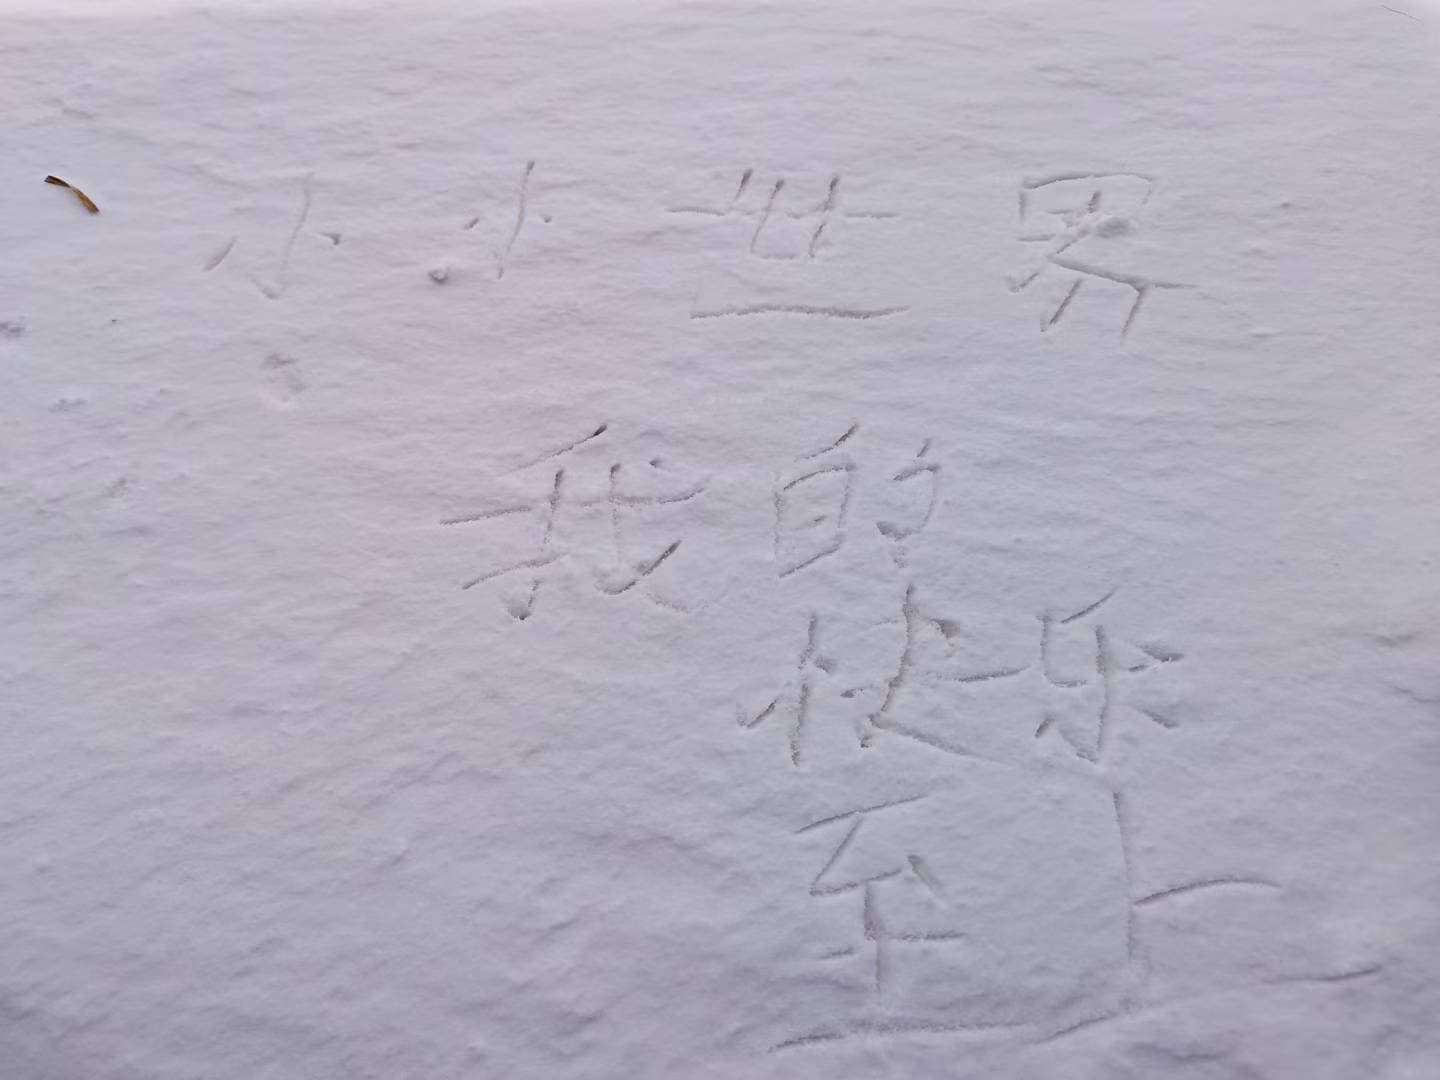 小小世界
我的
快乐
至上